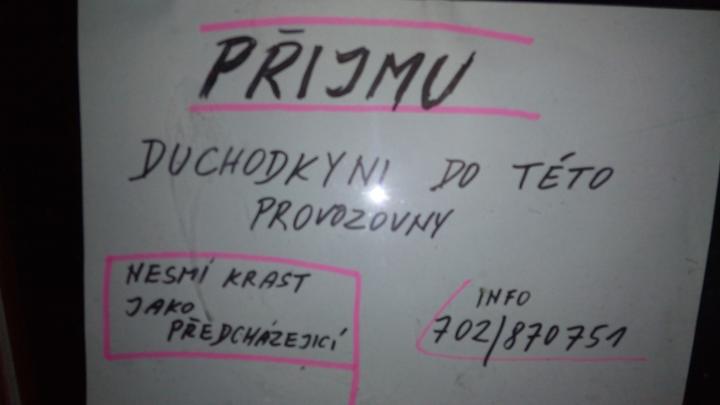 PŘIJMU
DUCHODKYNI DO TÉTO
PROVOZOVNY
NESMÍ KRAST
JAKO
PŘEDCHÁZEJICÍ
INFO
702/870751